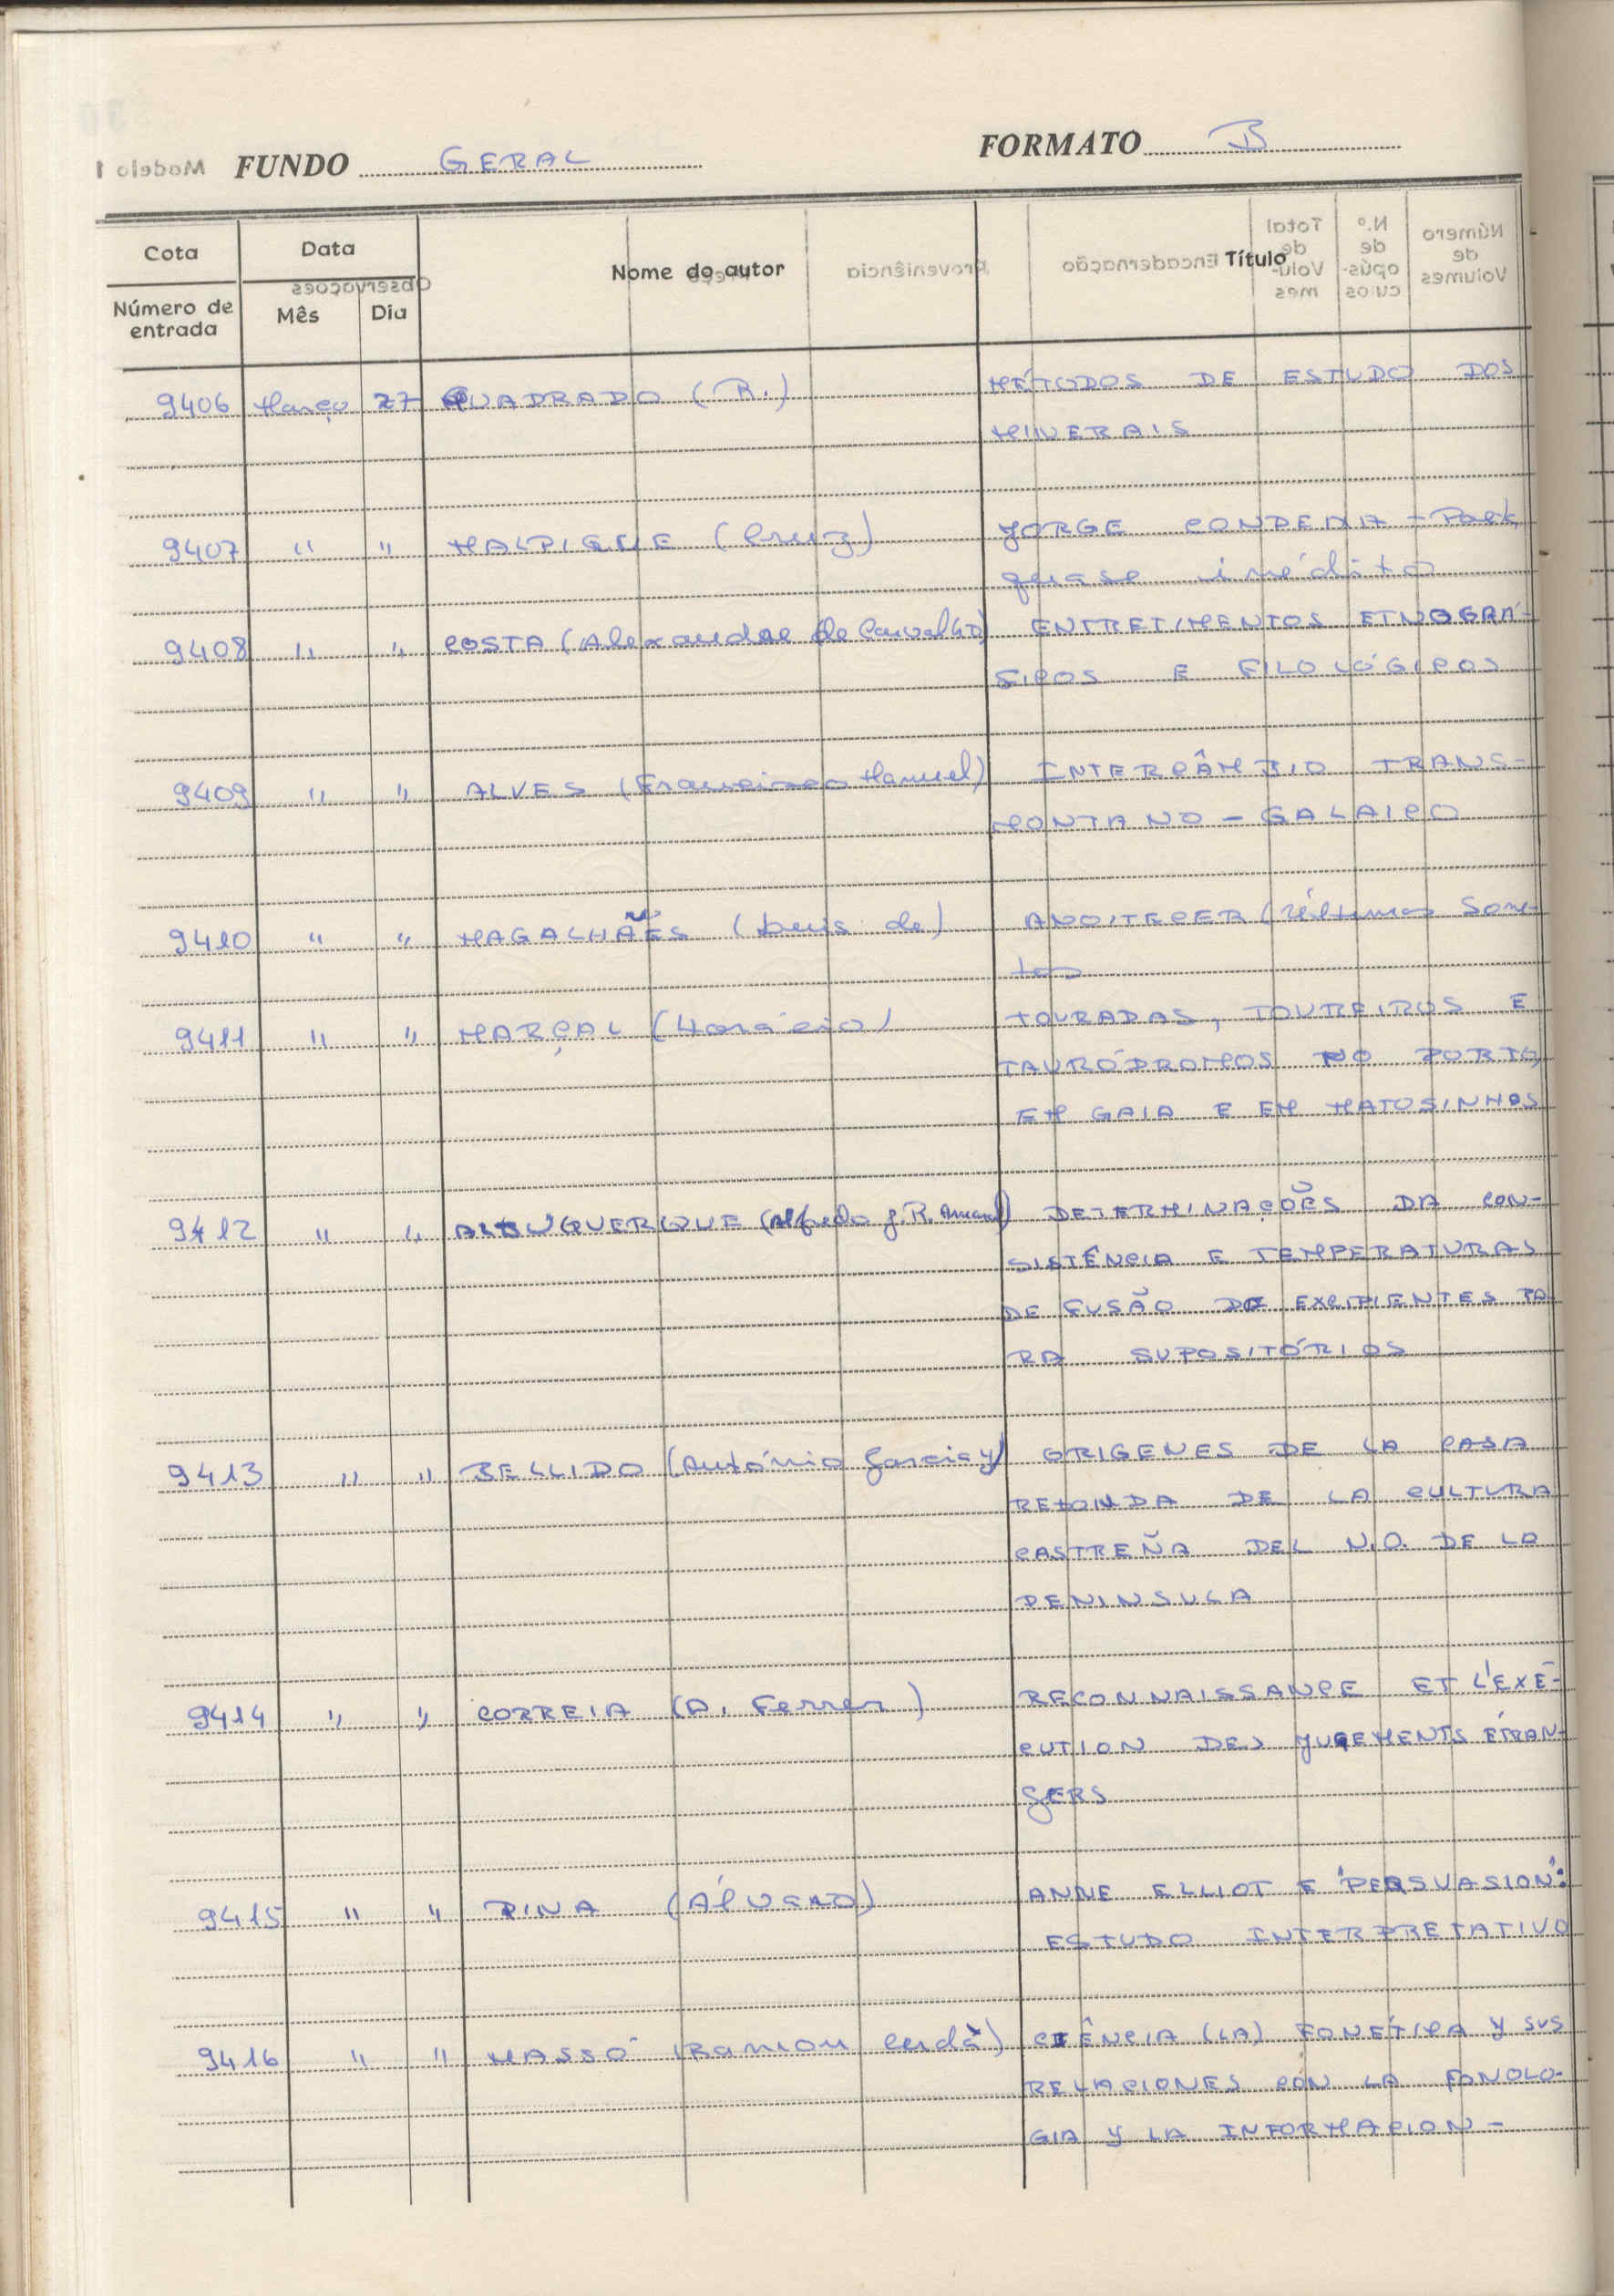 FUNDO GERAL FORMATO B
Cota Data Nome do autor Título
Número de entrada Mês Dia
9406 Março 27 QUADRADO (R.) MÉTODOS DE ESTUDO DOS
MINERAIS
9407 " " MALPIQUE (Cruz) JORGE CONDEIXA - Poeta
quase inédito
9408 " " COSTA (Alexandre de Carvalho) ENTRETIMENTOS ETNOGRÁ-
FICOS E FILOLÓGICOS
9409 " " ALVES (Francisco Manuel) INTERCÂMBIO TRANS-
MONTANO - GALAICO
9410 " " MAGALHÃES (Luís de) ANOITECER (Últimos Sone-
tos
9411 " " MARÇAL (Horácio) TOURADAS, TOUREIROS E
TAURÓDROMOS NO PORTO,
EM GAIA E EM MATOSINHOS
9412 " " ALBUQUERQUE (Alfredo J. R. Amaral) DETERMINAÇÕES DA CON-
SISTÊNCIA E TEMPERATURAS
DE FUSÃO DE EXCIPIENTES PA
RA SUPOSITÓRIOS
9413 " " BELLIDO (António Garcia y) ORIGENES DE LA CASA
REDONDA DE LA CULTURA
CASTREÑA DEL N.O. DE LA
PENINSULA
9414 " " CORREIA (A. Ferrer) RECONNAISSANCE ET L'EXÉ-
CUTION DES JUGEMENTS ÉTRAN-
GERS
9415 " " PINA (Álvaro) ANNE ELLIOT E "PERSUASION":
ESTUDO INTERPRETATIVO
9416 " " MASSÓ (Ramon Cerdà) CIÊNCIA (LA) FONÉTICA Y SUS
RELACIONES CON LA FONOLO-
GIA Y LA INFORMACION -